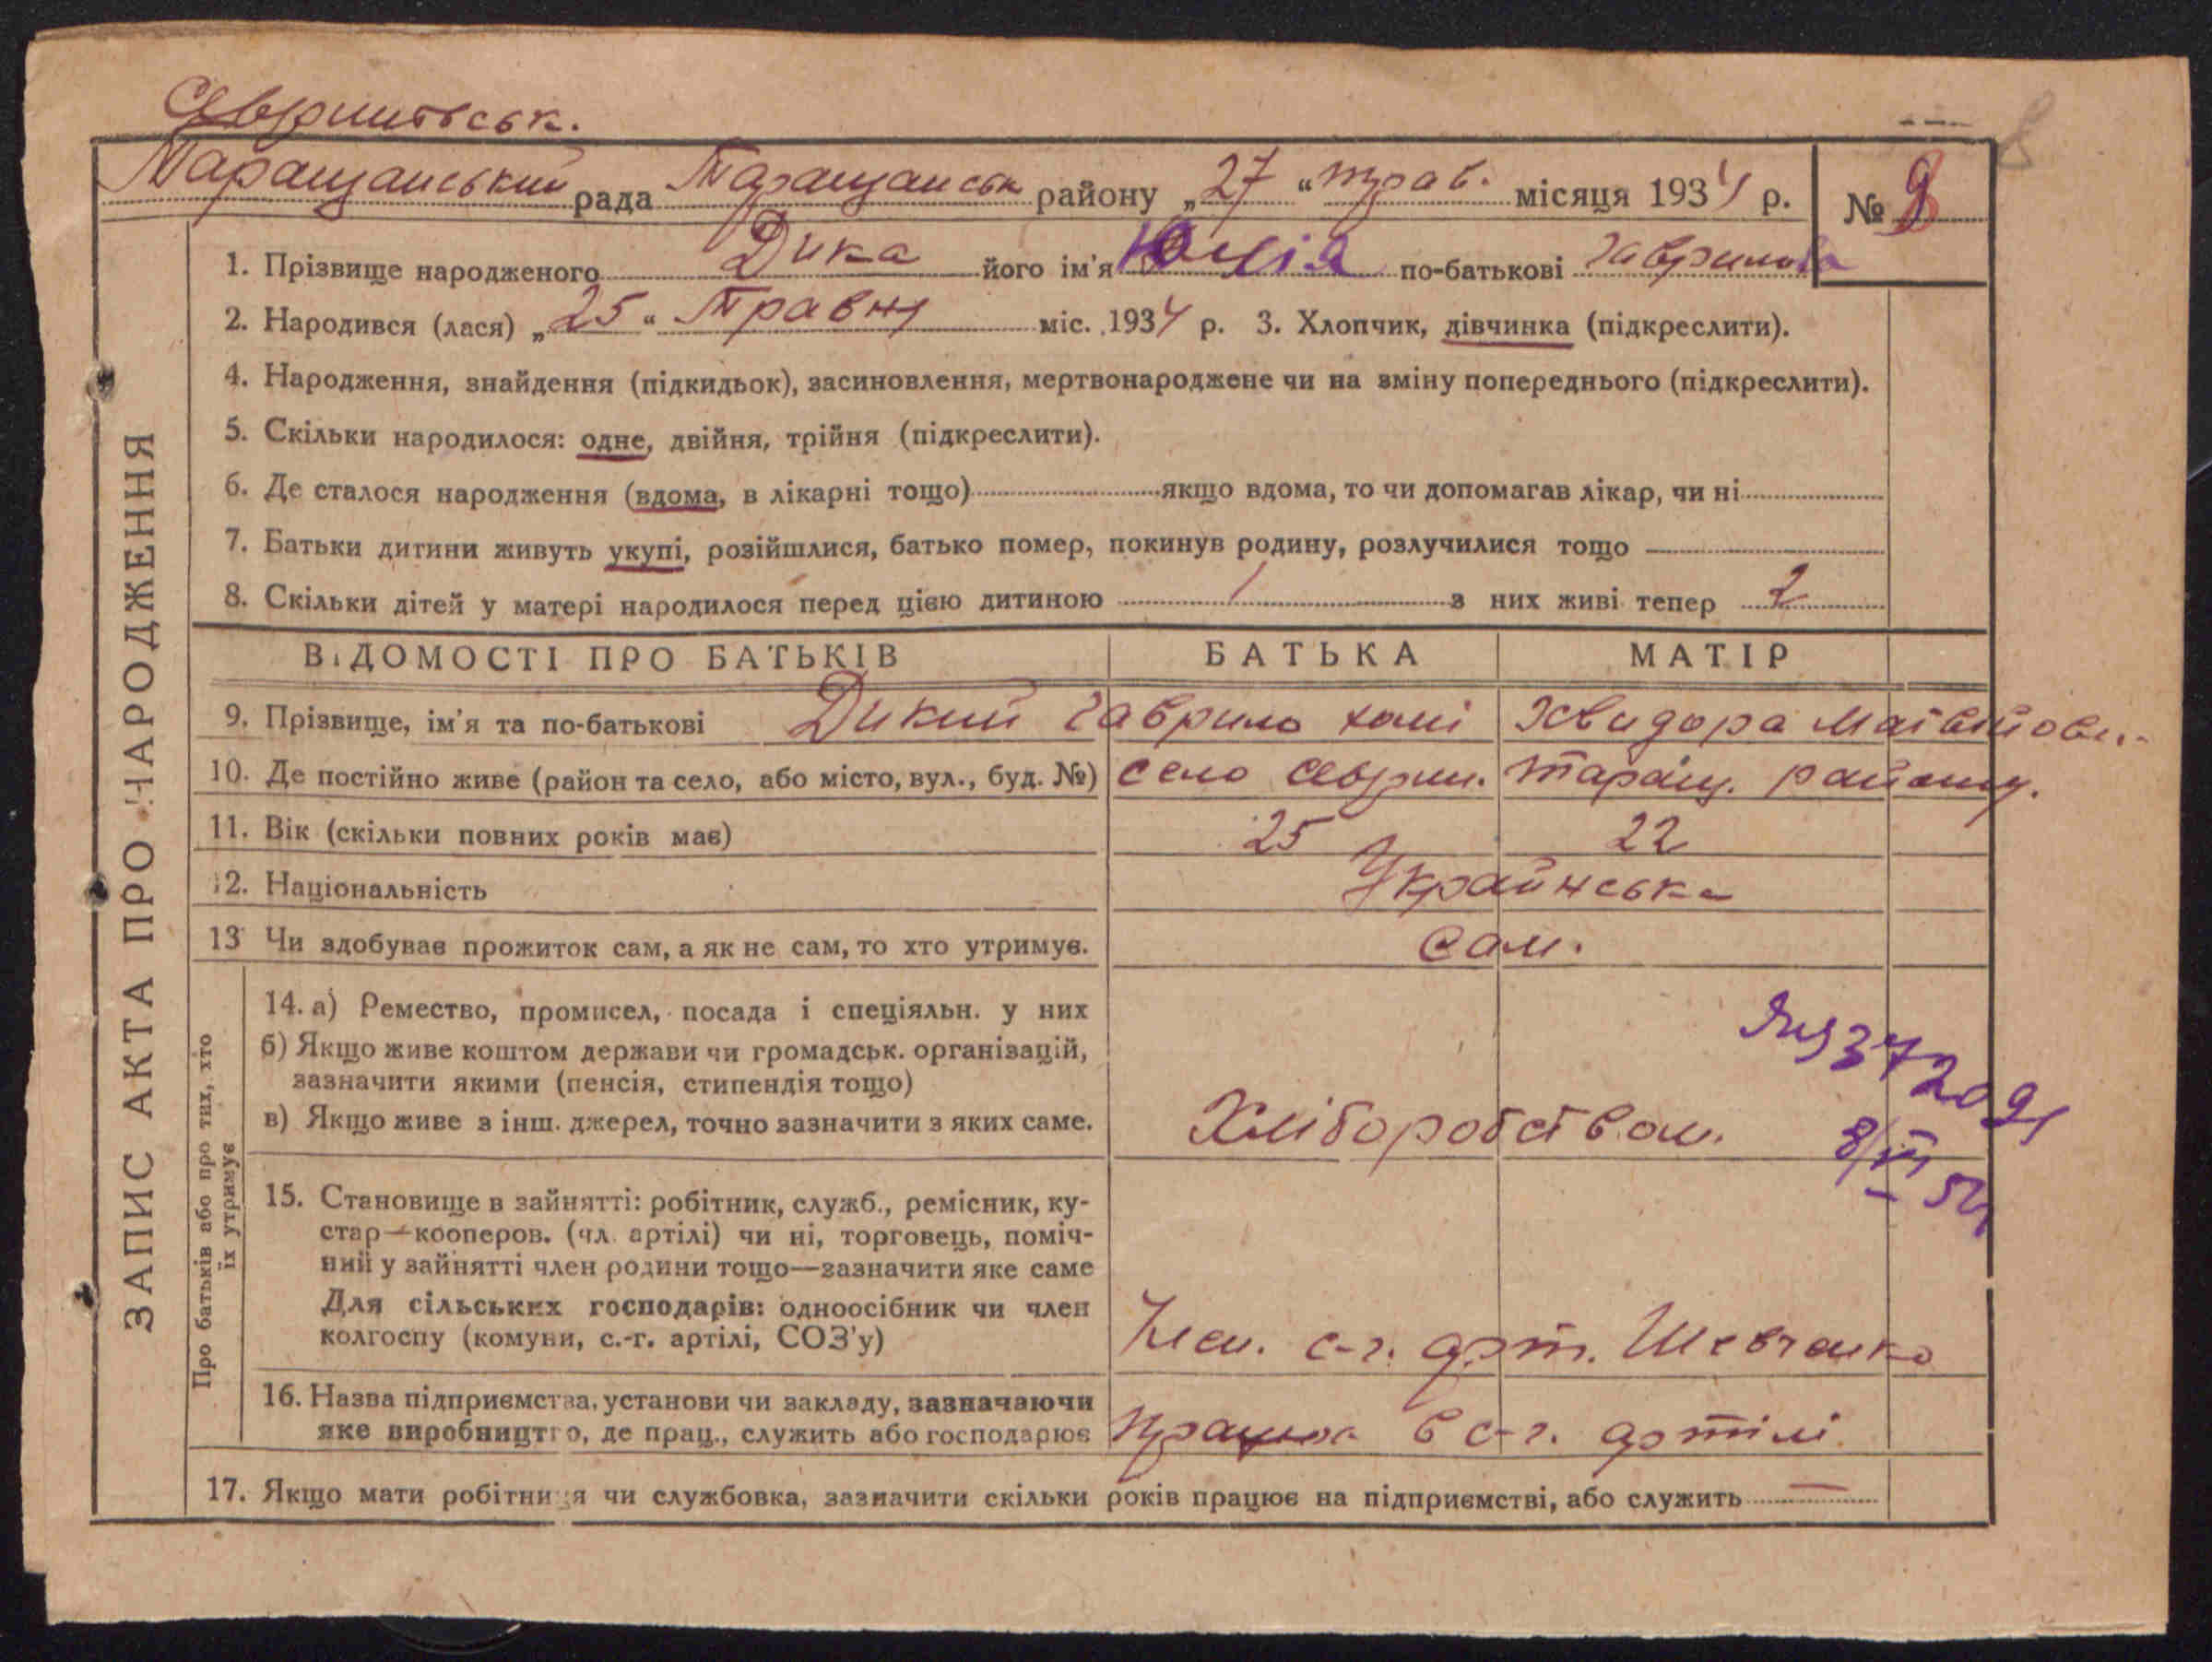 Сєвринівськ.
Таращанський рада Таращанськ району „27“ трав. місяця 1934 р. № 9
1. Прізвище народженого Дика його ім'я Юлія по-батькові Гаврилова
2. Народився (лася) „25“ Травня міс. 1934 р. 3. Хлопчик, дівчинка (підкреслити).
4. Народження, знайдення (підкидьок), засиновлення, мертвонароджене чи на зміну попереднього (підкреслити).
5. Скільки народилося: одне, двійня, трійня (підкреслити).
6. Де сталося народження (вдома, в лікарні тощо) якщо вдома, то чи допомагав лікар, чи ні
7. Батьки дитини живуть укупі, розійшлися, батько помер, покинув родину, розлучилися тощо
8. Скільки дітей у матері народилося перед цією дитиною 1 з них живі тепер 2
ВІДОМОСТІ ПРО БАТЬКІВ БАТЬКА МАТІР
9. Прізвище, ім'я та по-батькові Дикий Гаврило хомі Хвидора Матвійовн.
10. Де постійно живе (район та село, або місто, вул., буд. №) село Севрин. Таращ. району.
11. Вік (скільки повних років має) 25 22
12. Національність Українська
13 Чи здобуває прожиток сам, а як не сам, то хто утримує. Сам.
14. а) Ремество, промисел, посада і спеціяльн. у них
б) Якщо живе коштом держави чи громадськ. організацій,
зазначити якими (пенсія, стипендія тощо)
в) Якщо живе з інш. джерел, точно зазначити з яких саме. Хліборобством.
372091
8/III 54
15. Становище в зайнятті: робітник, служб., ремісник, ку-
стар—кооперов. (чл. артілі) чи ні, торговець, поміч-
ний у зайнятті член родини тощо—зазначити яке саме
Для сільських господарів: одноосібник чи член
колгоспу (комуни, с.-г. артілі, СОЗ'у) Член. с-г. арт. Шевченко
16. Назва підприємства, установи чи закладу, зазначаючи
яке виробництво, де прац., служить або господарює працює в с-г. артілі
17. Якщо мати робітниця чи службовка, зазначити скільки років працює на підприємстві, або служить —
ЗАПИС АКТА ПРО НАРОДЖЕННЯ
Про батьків або про тих, хто
їх утримує